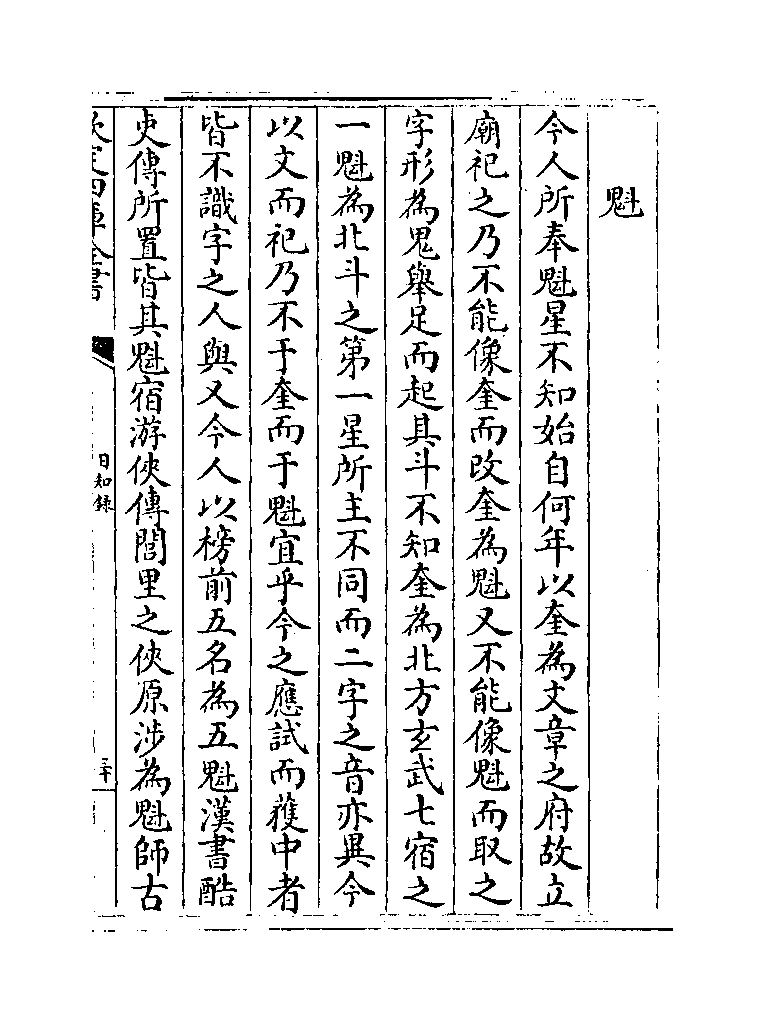 魁
今人所奉魁星不知始自何年以奎為文章之府故立
廟祀之乃不能像奎而改奎為魁又不能像魁而取之
字形為鬼舉足而起其斗不知奎為北方玄武七宿之
一魁為北斗之第一星所主不同而二字之音亦異今
以文而祀乃不于奎而于魁宜乎今之應試而獲中者
皆不識字之人與又今人以榜前五名為五魁漢書酷
吏傳所置皆其魁宿游俠傳閭里之俠原涉為魁師古
欽定四庫全書
日知錄
三十